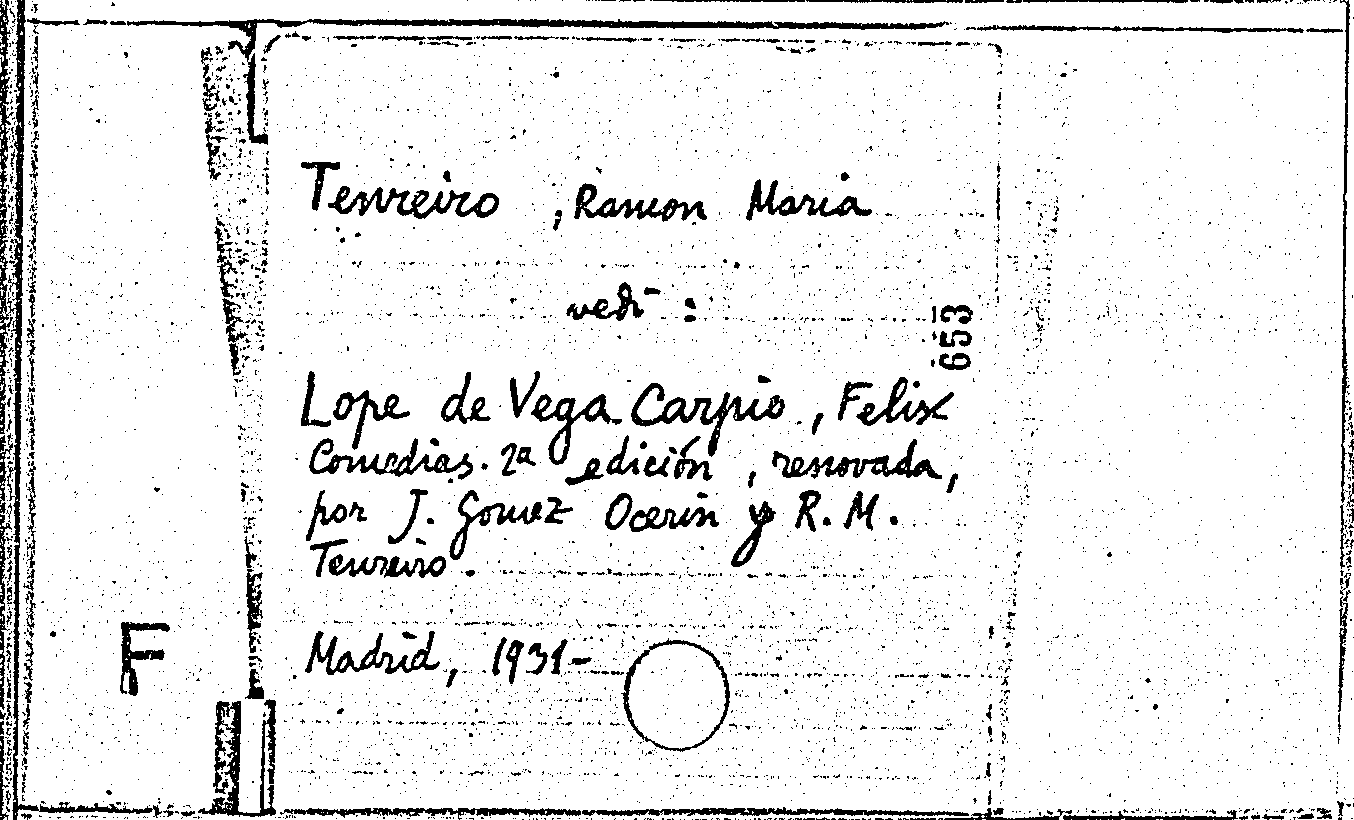 Tenreiro, Ramon Maria
vedi:
653
Lope de Vega Carpio, Felix
Comedias. 2a edición, renovada,
por J. Gomez Ocerin y R. M.
Tenreiro.
Madrid, 1931-
F